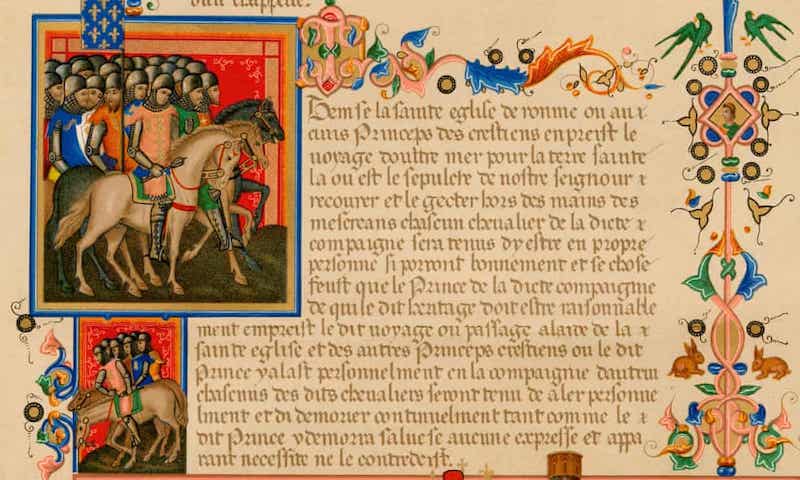 Item se la sainte eglise de romme ou aucuns
cuns Princeps des crestiens enpreist le
voyage doultre mer pour la terre sainte
la ou est le sepulcre de nostre seignour
recourer et le gecter hors des mains des
mescreans chascun chevalier de la dicte
compaigne sera tenus dy estre en propre
personne si porront bonnement et se chose
feust que le Prince de la dicte compaigne
de qui le dit heritage doit estre raisonnable
ment empreist le dit voyage ou passage alaide de la
sainte eglise et des autres Princeps crestiens ou le dit
Prince yalast personnelment en la compaignie dautrui
chascuns des dits chevaliers seront tenu de aler personne
lment et di demorer continuelment tant comme le
dit Prince ydemorra salue se aucune expresse et appa
rant necessite ne le contredeist.